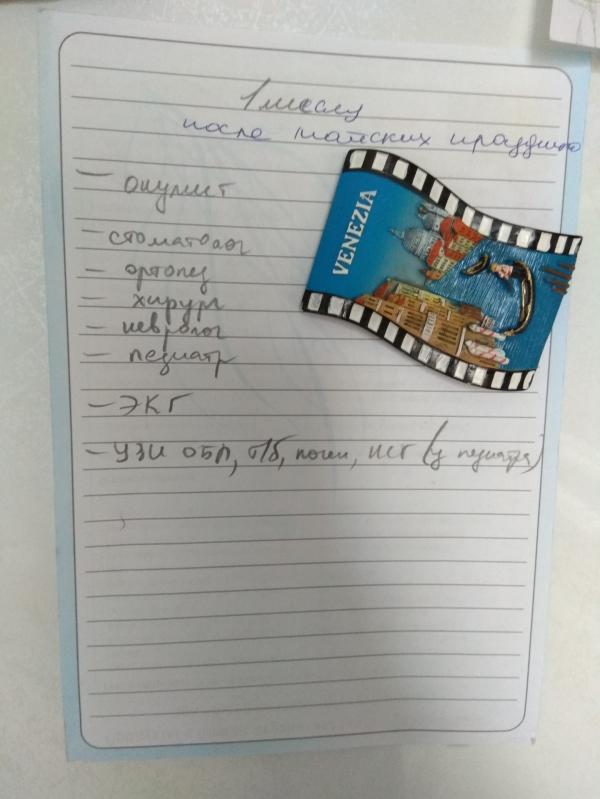 1 месяц
после майских праздников
VENEZIA
- окулист
- стоматолог
- ортопед
- хирург
- невролог
- педиатр
- ЭКГ
- УЗИ ОБП, т/б, почки, НСГ (у педиатра)